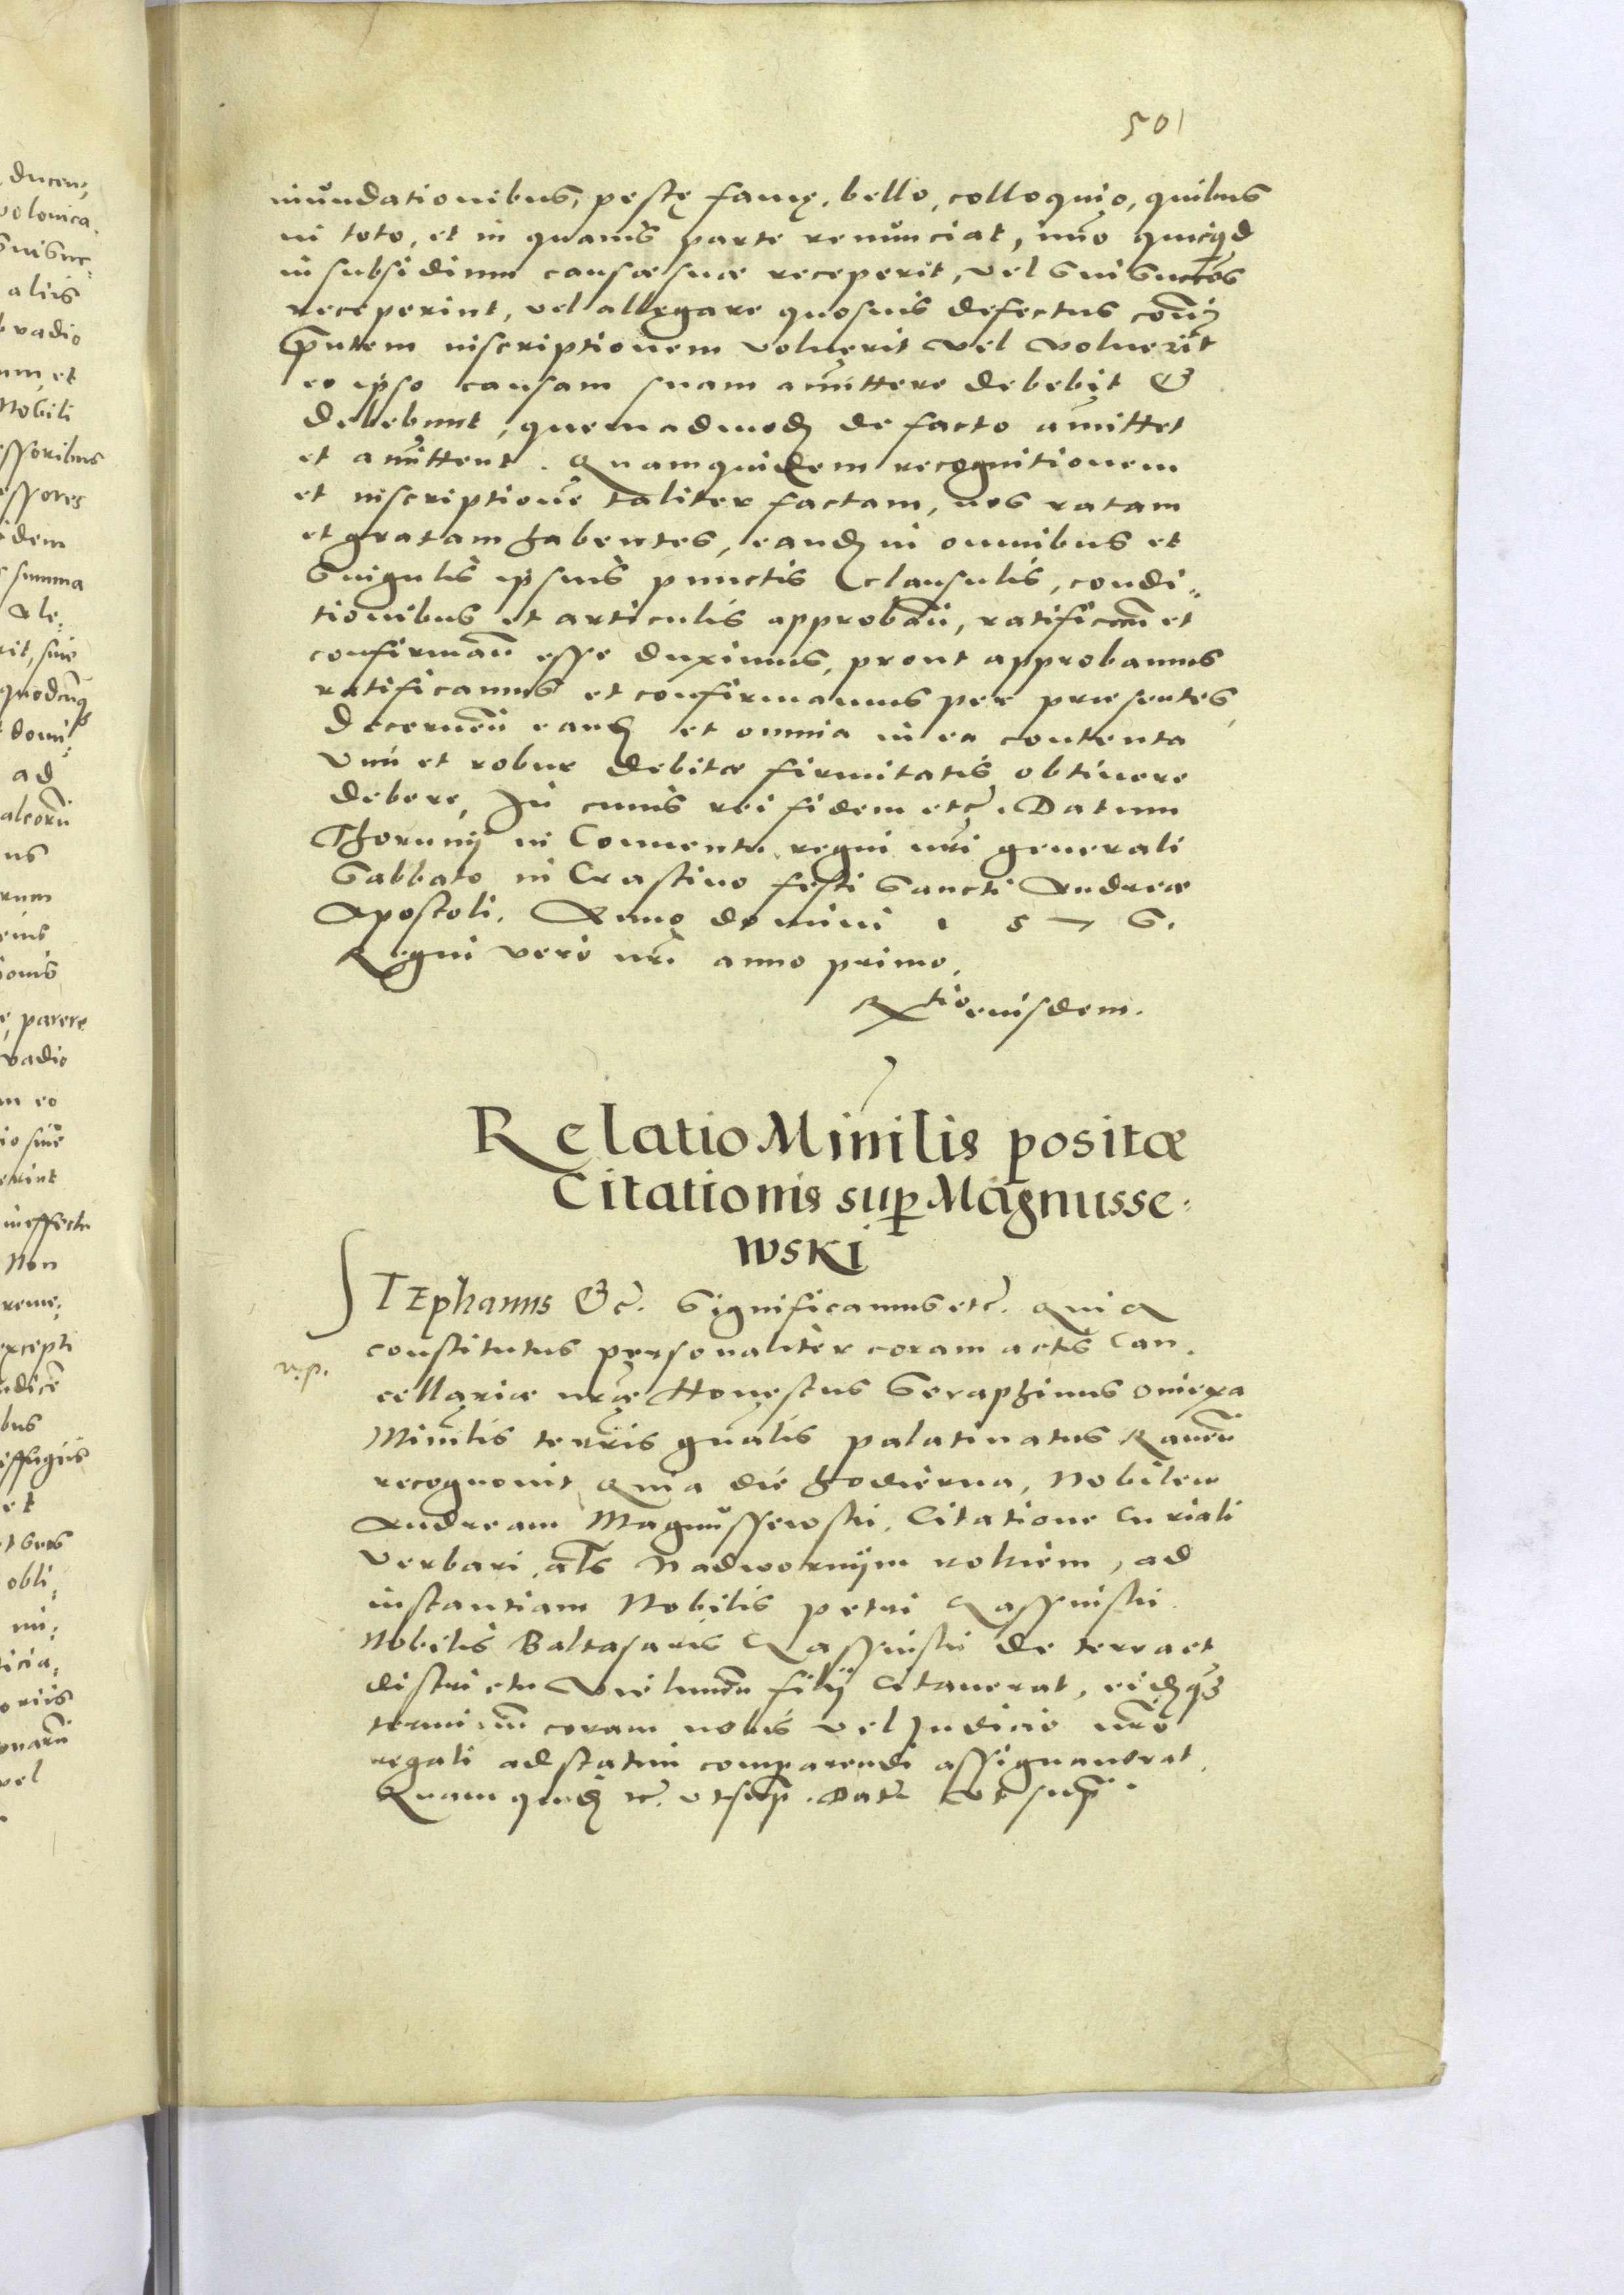 501
inundationibus, peste fame, bello, colloquio, quibus
in toto, et in quamvis parte renunciat, imo quicqd
in subsidium causæ suæ receperit, vel sui succes
receperint, vel allegare quosvis defectus contra
pntem inscriptionem voluerit vel voluerit
eo ipso causam suam amittere debebit &
debebunt, quemadmod de facto amittet
et amittent. Quamquidem recognitionem
et inscriptione taliter factam, nos ratam
et gratam habentes, eand in omnibus et
singulis ipsius punctis clausulis, condi„
tionibus et articulis approban, ratifican et
confirman esse duximus, prout approbamus
ratificamus et confirmamus per præsentes,
Decernen eand et omnia in ea contenta
vim et robur debitæ firmitatis obtinere
debere, In cuius rei fidem etc. Datum
Thorunij in Conventu regni nri generali
Sabbato in Crastino festi Sancti Andreæ
Apostoli. Anno domini 1 5 7 6.
Regni vero nri anno primo.
Rtio eiusdem.
Relatio Minilis positæ
Citationis sup Magnusse:
wski
STEphanus &c. Significamus etc. Quia
constitutus personaliter coram actis Can,
r.p.
cellariæ nræ Honestus Seraphinus
Minilis terris gnalis palatinatus Raven
recognovit quia die hodierna, Nobilem
Andream Magnussewski, Citatione Curiali
Verbari, als Nadwornijm rokiem, ad
instantiam Nobilis petri
Nobilis Baltasaris de terra et
districtu Vielunen filij Citaverat, eidqz
terminum coram nobis vel Judicio nro
regali ad statim comparendi assignaverat.
Quam quid etc. ut sup. Dat ut sup.